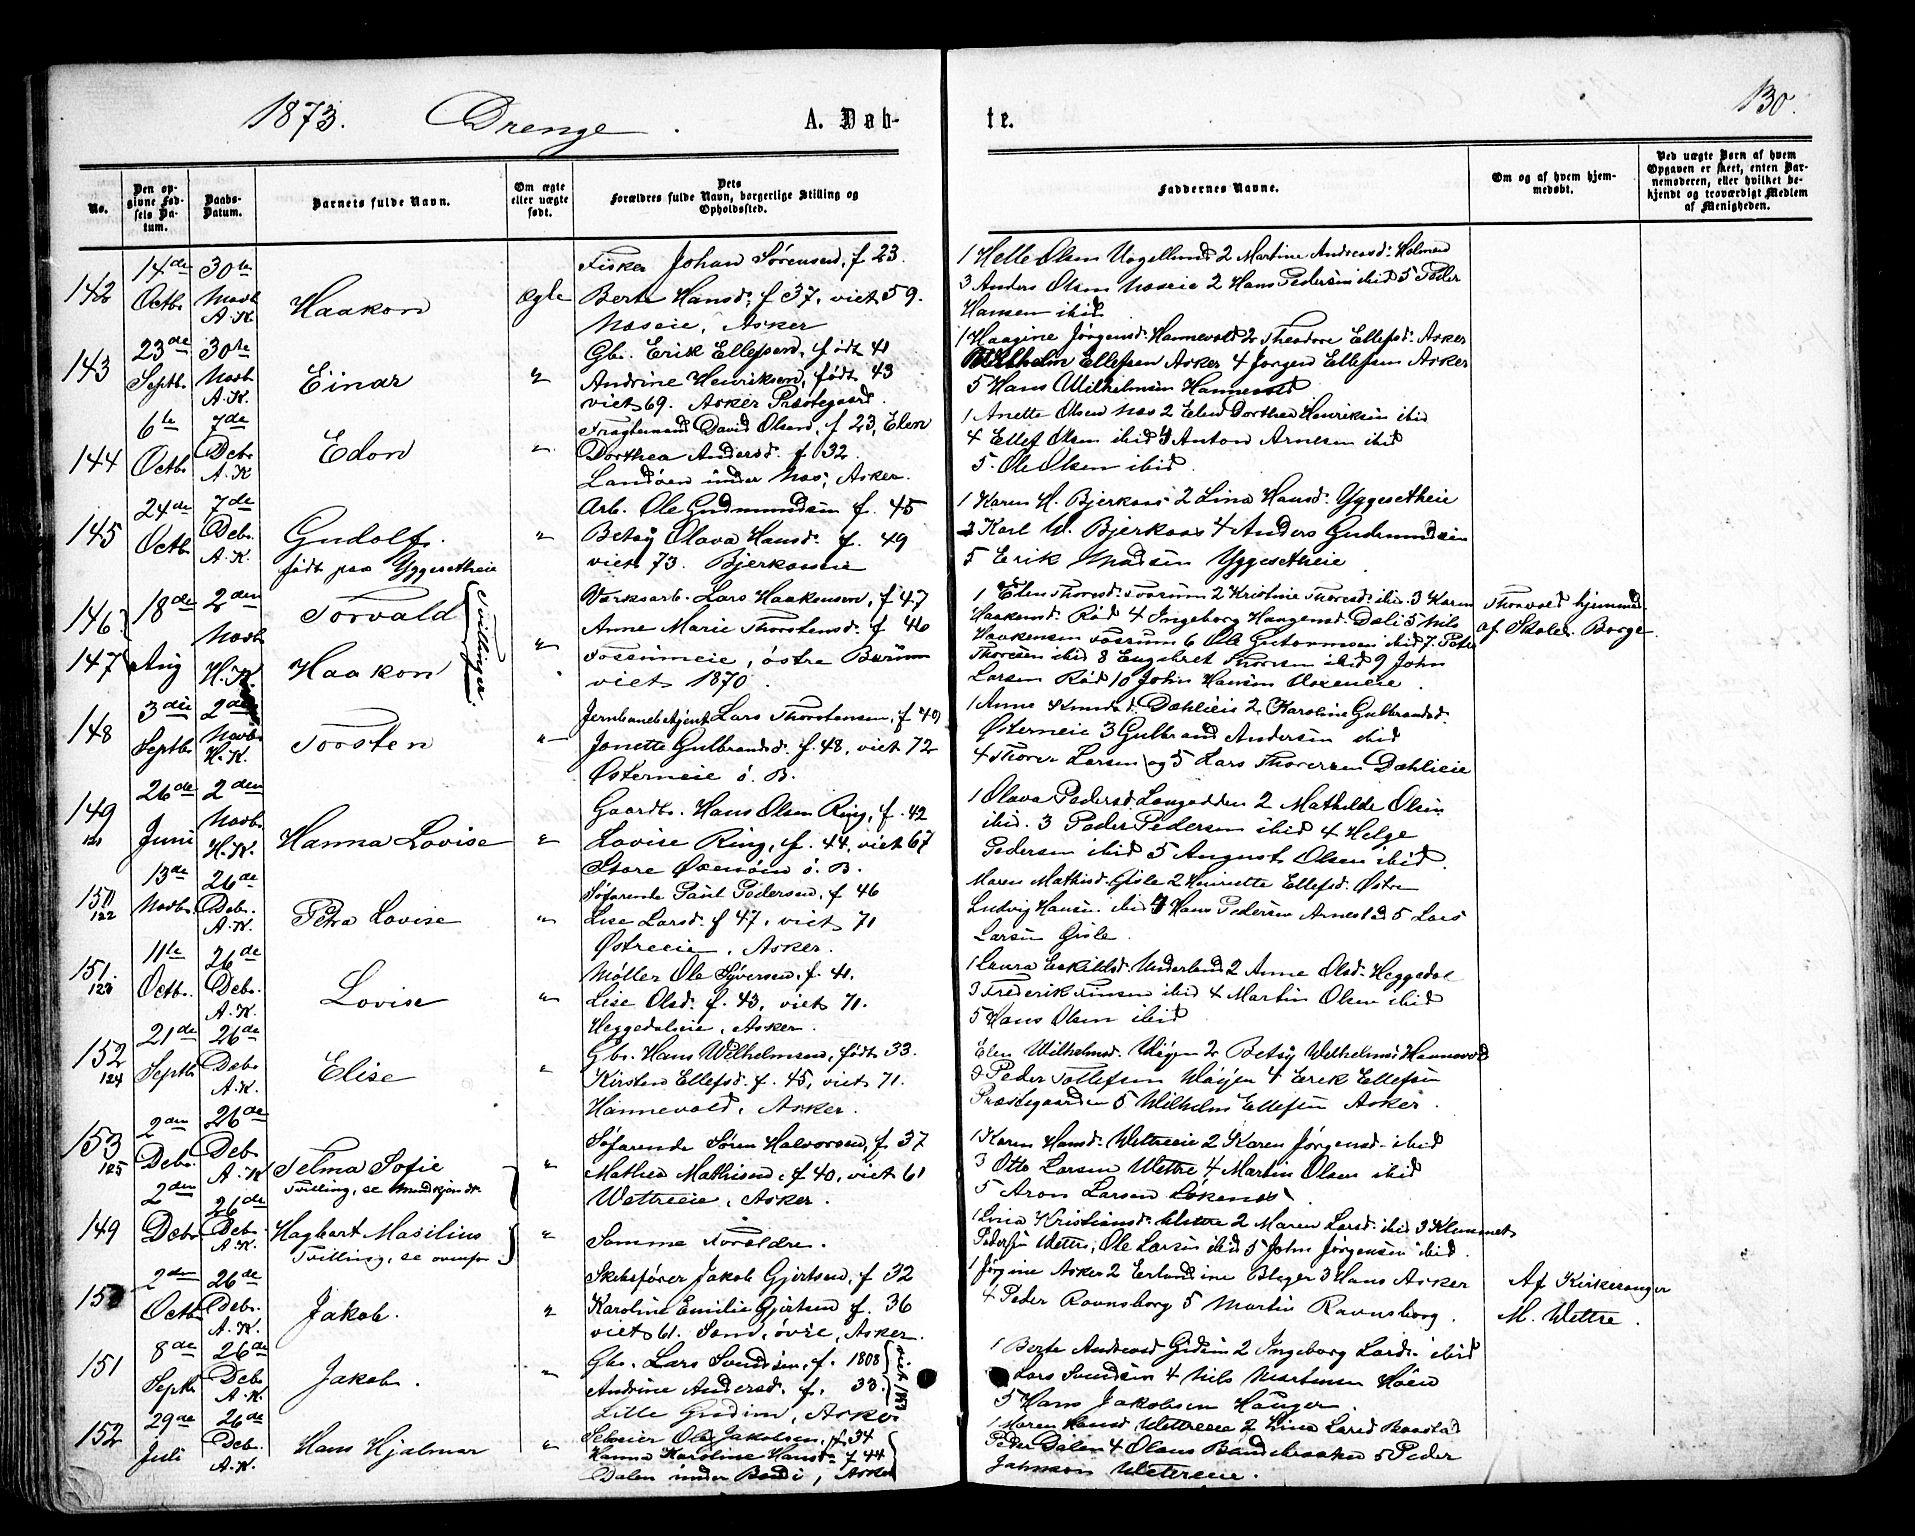 1873. Drenge. A. Døb-
te. 130.
No.
Den op-
givne Fød-
sels Da-
tum.
Daabs-
Datum.
Barnets fulde Navn.
Om ægte
eller uægte
født.
Dets
Forældres fulde Navn, borgerlige Stilling og
Opholdssted.
Faddernes Navne.
Om og af hvem hjem-
medøbt.
Ved uægte Børn af hvem
Opgaven er skeet, enten Bar-
nemoderen, eller hvilket be-
kjendt og troværdigt Medlem
af Menigheden.
142
14de
Octbr
30te
Novb
A.K
Haakon
Ægte
Fisker Johan Sørensen, f 23.
Berte Hansd. f 37, viet 59.
Næseie, Asker
1 Helle Olsen 2 Martine Andreasd. Holmen
3 Anders Olsen Næseie 2 Hans Pedersen ibid 5 Peder
Hansen ibid
143
23de
Septb.
30te
Novb
A.K.
Einar
"
Gbr. Erik Ellefsen, født 41
Andrine Henriksen, født 43
viet 69. Asker Præstegaard.
1 Haagine Jørgensd. Hannevold 2 Theodore Ellefsd. Asker
Wilhelm Ellefsen Asker 4 Jørgen Ellefsen Asker
5 Hans Wilhelmsen Hannevold
144
6te
Octbr
7de
Debr
A.K
Edon
"
Fragtemand David Olsen, f 23, Elen
Dorthea Andersd. f 32.
Landøen under Næs, Asker.
1 Anette Olsen Næs 2 Elen Dorthea Henriksen ibid
4 Ellef Olsen ibid 4 Anton Arnesen ibid
5. Ole Olsen ibid.
145
24de
Octb
7de
Debr.
A.K.
Gudolf.
født paa Yggesetheie
"
Arb. Ole Gudmundsen f. 45
Betsy Olava Hansd. f. 49
viet 73. Bjerkaseie
1 Karen H. Bjerkaas 2 Lina Hansd. Yggesetheie
3 Karl W. Bjerkaas 4 Anders Gudmundsen
5 Erik Madsen Yggesetheie
146
147
18de
Aug
2den
Novb
H.K.
Torvald
Haakon
Tvillinger
"
Værksarb. Lars Haakensen, f 47
Anne Marie Thorstensd. f 46
Fossumeie, østre Bærum
viet 1870.
1 Elen Thorsd. Fossum 2 Kristine Thoresd. ibid. 3 Karen
Haakensd. Rød 4 Ingeborg Haagensd. Dæli 5 Nils
Haakensen Fossum 6 Ole Guttormsen ibid 7. Peter
Thoresen ibid 8 Engebret Thoresen ibid 9 John
Larsen Rød 10 John Hansen
Thorvald hjemmed.
af Skolel. Borge.
148
3die
Septbr
2den
Novbr
H.K.
Torsten
"
Jernbanebetjent Lars Thorstensen, f 40
Jonette Gulbrandsd. f. 48, viet 72
Østerneie ø. B.
1 Anne Amundsd. Dæhlieie 2 Karoline Gulbrandsd.
Østerneie 3 Gulbrand Andersen ibid
4 Thorer Larsen og 5 Lars Thoresen Dæhlieie
149
121
26de
Juni
2den
Novbr
H.K.
Hanna Lovise
"
Gaardbr. Hans Olsen Ring, f. 42
Lovise Ring, f. 44, viet 67
Store Oxenøen ø. B.
1 Olava Pedersd. Langodden 2 Mathilde Olsen
ibid. 3 Peder Pedersen ibid 4 Helge
Pedersen ibid 5 August Olsen ibid.
150
122
13de
Novbr.
26de
Debr.
A.K.
Petra Lovise
"
Søfarende Paul Pedersen, f 46
Lise Larsd. f 47, viet 71
Østreeie, Asker.
Maren Mathisd. Gisle 2 Henriette Ellefsd. Østre
Ludvig Hansen ibid 4 Hans Pedersen Arnestad 5 Lars
Larsen Gisle.
151.
123
11te
Octbr.
26de
Debr.
A.K.
Lovise
"
Møller Ole Syversen, f. 41.
Lise Olsd. f. 43, viet 71.
Heggedalseie, Asker.
1 Laura Eskildsd. Underland 2 Anne Olsd. Heggedal
3 Frederik Finsen ibid 4 Martin Olsen ibid
5 Hans Olsen ibid
152
124
21de
Septbr
26de
Debr
A.K.
Elise
"
Gbr. Hans Wilhelmsen, født 33.
Kirsten Ellefsd. f. 45, viet 71.
Hannevold, Asker.
Elen Wilhelmsd. Wøyen 2 Betsy Wilhelms. Hannevold
3 Peder Tollefsen Wøyen 4 Erik Ellefsen
Præstegaarden 5 Wilhelm Ellefsen Asker.
153
125
2den
Debr.
26de
Debr.
A.K
Telma Sofie
Tvilling, se Mandkjøndt.
"
Søfarende Søren Halvorsen, f 37
Mathea Mathisen, f 40, viet 61
Wettreeie, Asker.
1 Karen Hansd. Wettreeie 2 Karen Jørgensd. ibid
3 Otto Larsen Wettre 4 Martin Olsen ibid
5 Aron Larsen Løkenes
149
2den
Debr
26de
Debr.
A.K.
Hagbart Masilius
Tvilling, se ovenfor
"
Samme Forældre.
1 Lina Kristiansd. Wettre 2 Maren Larsd. ibid 3 Klemmet
Pedersen Wettre, Ole Larsen ibid 5 John Jørgensen ibid.
150
2den
Octb
26de
Debr.
A.K.
Jakob.
"
Skibsfører Jakob Gjertsen, f 32
Karoline Emilie Gjertsen f. 36
viet 61. Sem, øvre, Asker.
1 Jørgine Asker 2 Erlandine Bleger 3 Hans Asker
4 Peder Ravnsborg 5 Martin Ravnsborg.
Af Kirkesanger
M. Wettre.
151
8de
Septb
26de
Debr
A.K.
Jakob.
"
Gbr. Lars Svendsen, f. 1808
Andrine Andersd. f. 33.
Lille Gudim, Asker
1 Berte Andreasd. Gudim 2 Ingeborg Larsd. ibid
Lars Svendsen 4 Nils Mortensen Høen
5 Hans Jakobsen Hauger.
152
29de
Juli
26de
Debr.
A.K.
Hans Hjalmar
"
Selveier Ole Jakobsen, f. 34
Hanna Karoline Hansd. f 44
Dalen under Bondi, Asker
1 Maren Hansd. Wettreeie 2 Lina Larsd.
Peder Dalen 4 Olaus Bondibraaten 5 Peder
Johnsen Wettreeie.